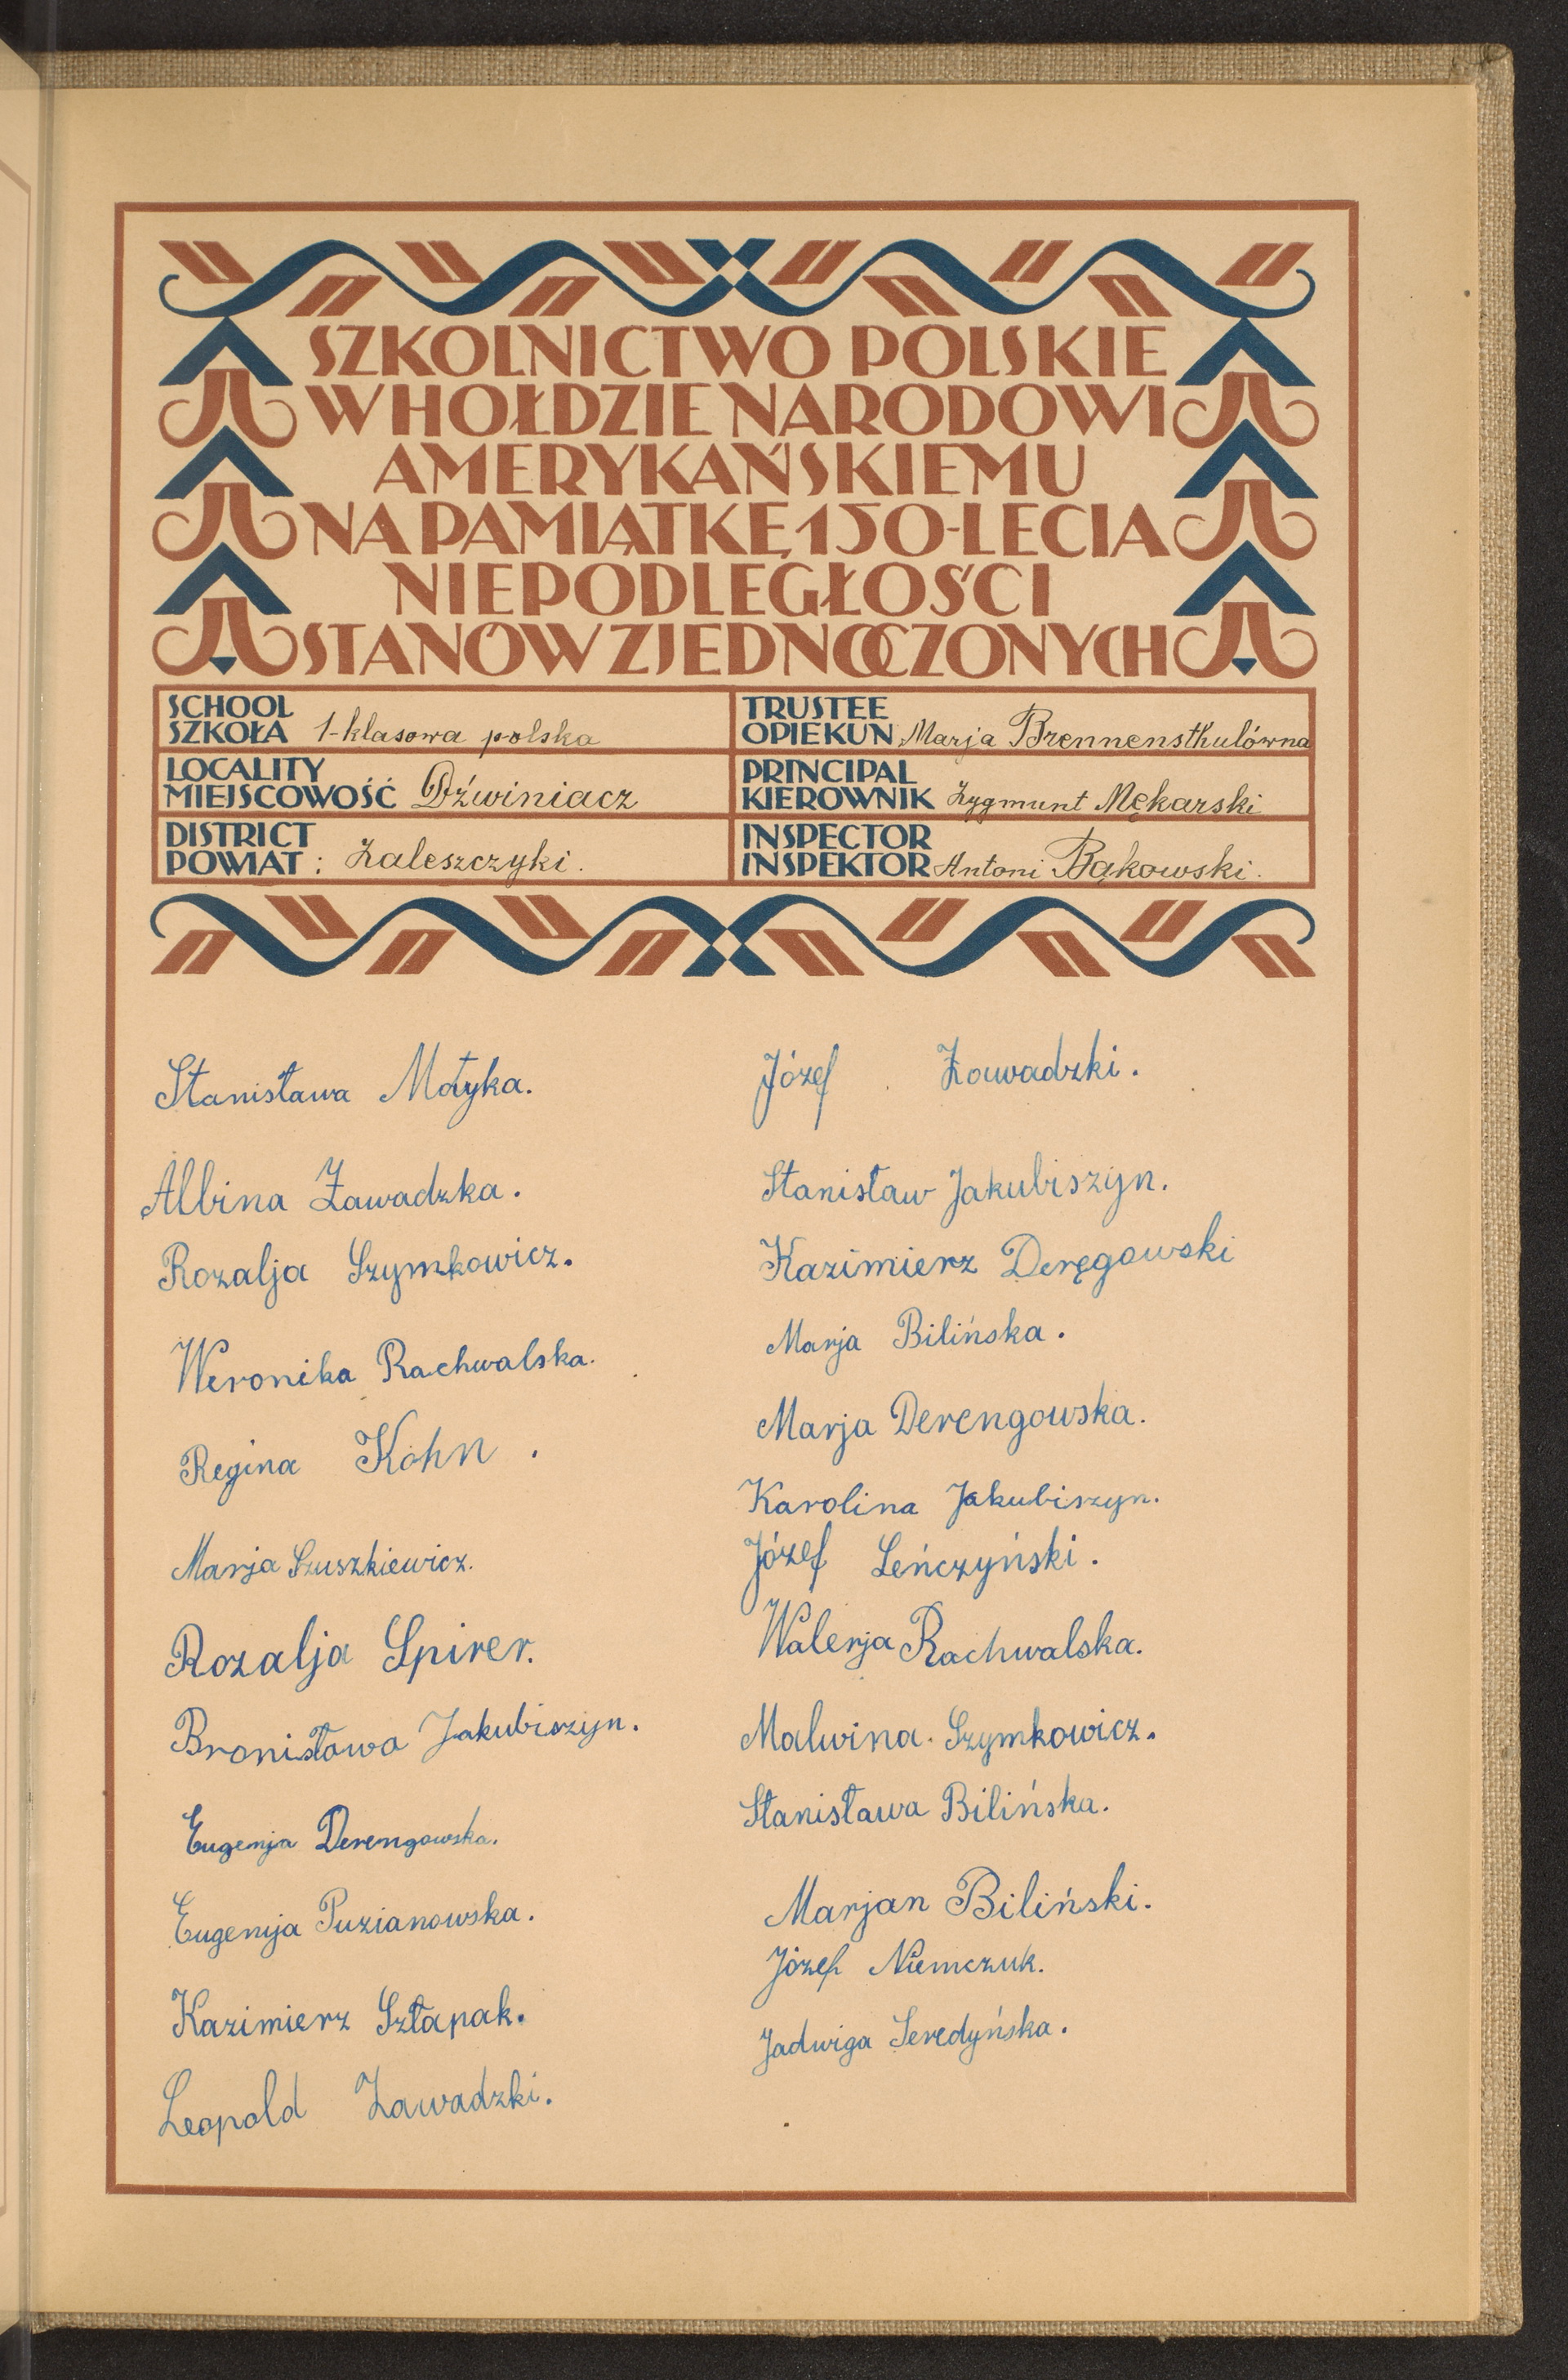 SZKOLNICTWO POLSKIE
W HOŁDZIE NARODOWI
AMERYKAŃSKIEMU
NA PAMIĄTKĘ 150-LECIA
NIEPODLEGŁOŚCI
STANÓW ZJEDNOCZONYCH
SCHOOL
SZKOŁA 1-klasowa polska
LOCALITY
MIEJSCOWOŚĆ Dźwiniacz
DISTRICT
POWIAT : Zaleszczyki.
TRUSTEE
OPIEKUN Marja Brennensthulówna
PRINCIPAL
KIEROWNIK Zygmunt Mękarski
INSPECTOR
INSPEKTOR Antoni Bąkowski.
Stanisława Motyka.
Albina Zawadzka.
Rozalja Szymkowicz.
Weronika Rachwalska.
Regina Kohn.
Marja Szuszkiewicz.
Rozalja Spirer.
Bronisława Jakubiszyn.
Eugenja Derengowska.
Eugenija Puzianowska.
Kazimierz Szłapak.
Leopold Zawadzki.
Józef Zawadzki.
Stanisław Jakubiszyn.
Kazimierz Deręgowski
Marja Bilińska.
Marja Derengowska.
Karolina Jakubiszyn.
Józef Leńczyński.
Walerja Rachwalska.
Malwina Szymkowicz.
Stanisława Bilińska.
Marjan Biliński.
Józef Niemczuk.
Jadwiga Seredyńska.